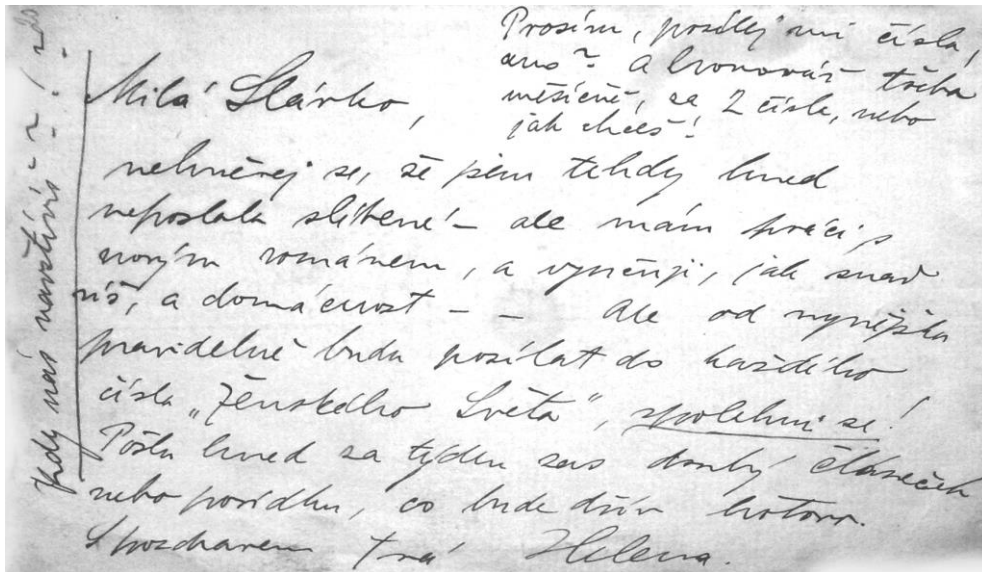 Prosím, posílej mi čísla,
ano? A honorář třeba
měsíčně, za 2 čísla, nebo
jak chceš!
Milá Slávko,
nehněvej se, že jsem tehdy hned
neposlala slíbené – ale mám práci s
novým románem, a vyučuji, jak snad
víš, a domácnost – – Ale od nynějška
pravidelně budu posílat do každého
čísla „Ženského Světa“, spolehni se!
Pošlu hned za týden zas druhý článeček
nebo povídku, co bude dřív hotovo.
S pozdravem Tvá Helena.
Kdy nás navštívíš? ? ! !